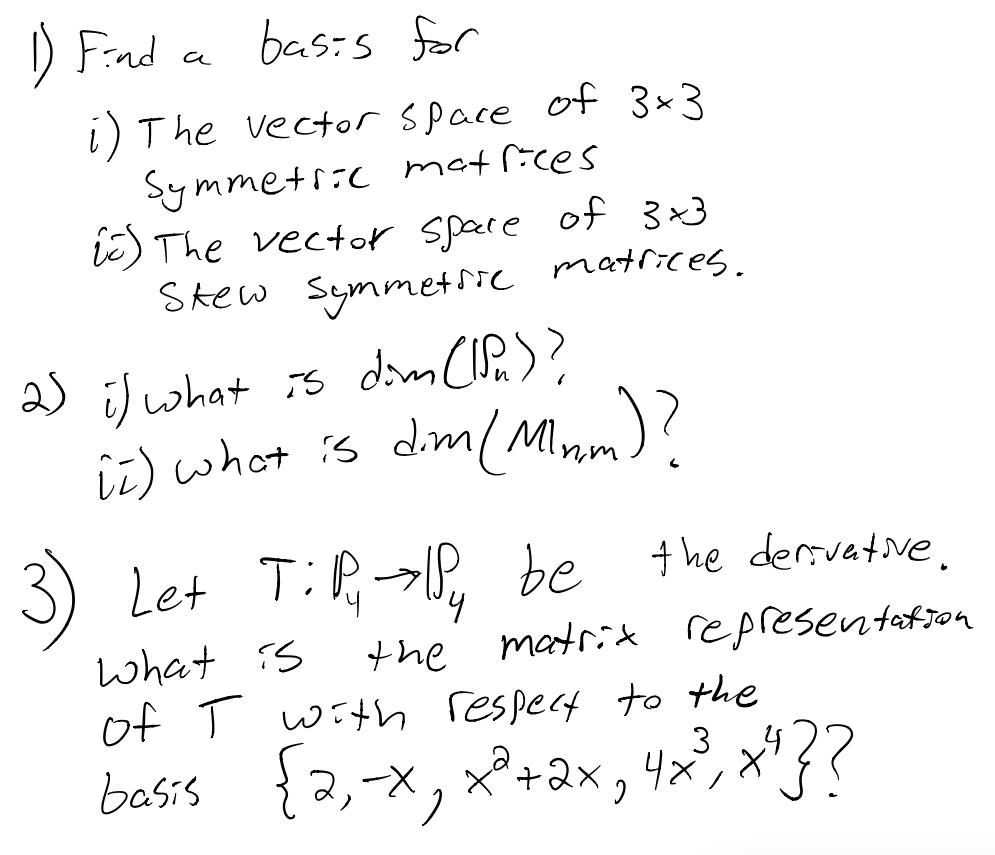 1) Find a basis for
i) The vector space of 3×3
symmetric matrices
ii) The vector space of 3×3
skew symmetric matrices.
2) i) what is dim(ℙₙ)?
ii) what is dim(𝕄ₙ,ₘ)?
3) Let T: ℙ₄→ℙ₄ be the derivative.
what is the matrix representation
of T with respect to the
basis {2, -x, x²+2x, 4x³, x⁴}?